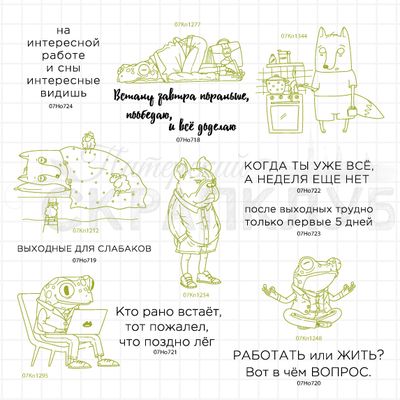 на
интересной
работе
и сны
интересные
видишь
07Но724
07Кл1277
Встану завтра пораньше,
пообедаю,
и всё доделаю
07Но718
07Кл1344
Питерский
СКРАПКЛУБ
07Кл1212
ВЫХОДНЫЕ ДЛЯ СЛАБАКОВ
07Но719
07Кл1254
КОГДА ТЫ УЖЕ ВСЁ,
А НЕДЕЛЯ ЕЩЕ НЕТ
07Но722
после выходных трудно
только первые 5 дней
07Но723
07Кл1295
Кто рано встаёт,
тот пожалел,
что поздно лёг
07Но721
07Кл1248
РАБОТАТЬ или ЖИТЬ?
Вот в чём ВОПРОС.
07Но720